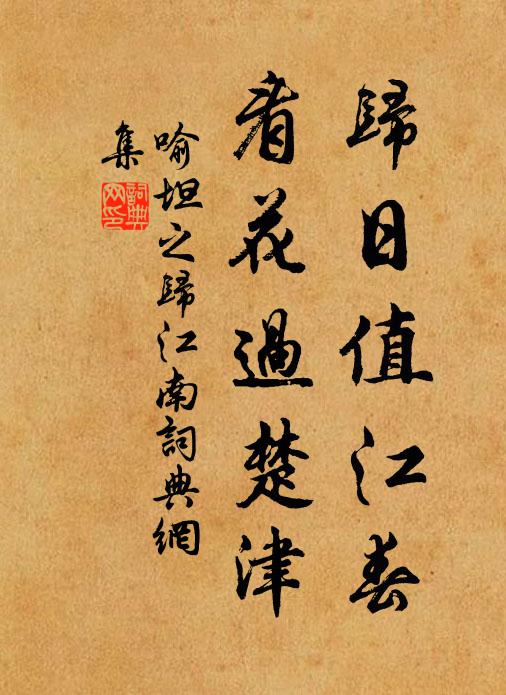 歸日值江春
看花過楚津
喻坦之歸江南詞典網
集
詞典
网印